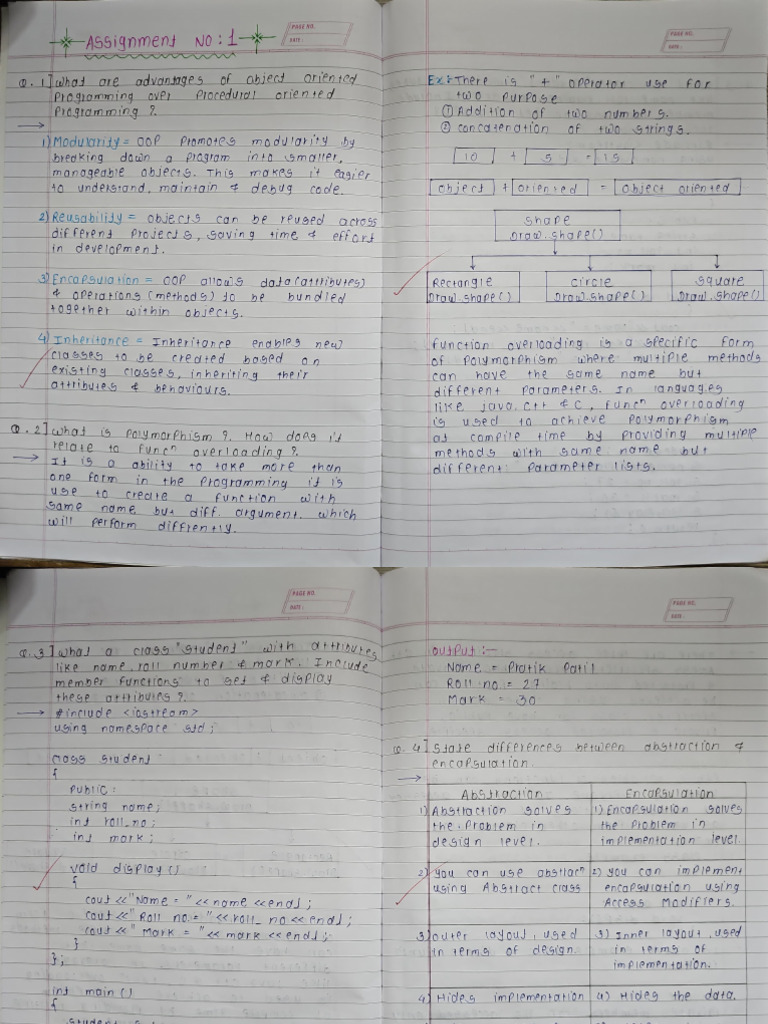 Assignment No: 1
PAGE NO.
DATE:
Q. 1] What are advantges of object oriented
Programming over Procedural oriented
Programming ?
1) Modularity = OOP Promotes modularity by
breaking down a program into smaller,
manageable objects. This makes it easier
to understand, maintain & debug code.
2) Reusability = objects can be reused across
different Projects, saving time & effort
in development.
3) Encapsulation = OOP allows data (attributes)
& operations (methods) to be bundled
together within objects.
4) Inheritance = Inheritance enables new
classes to be created based on
existing classes, inheriting their
attributes & behaviours.
Q. 2] What is Polymorphism ? How does it
relate to funcⁿ overloading ?
It is a ability to take more than
one form in the Programming it is
use to create a function with
same name but diff. argument. which
will perform diffrently.
PAGE NO.
DATE:
Ex: There is "+" operator use for
two purpose
① Addition of two numbers.
② concatenation of two strings.
10 + 5 = 15
object + oriented = object oriented
Shape
Draw.shape()
Rectangle circle square
Draw.shape() Draw.shape() Draw.shape()
function overloading is a specific form
of Polymorphism where multiple methods
can have the same name but
different Parameters. In languages
like java, C++ & C, funcⁿ overloading
is used to achieve Polymorphism
at compile time by providing multiple
methods with same name but
different Parameter lists.
PAGE NO.
DATE:
Q. 3] What a class "student" with attributes
like name, roll number & mark. Include
member functions to set & display
these attributes ?
#include <iostream>
using namespace std;
class student
{
Public:
string name;
int roll_no;
int mark;
void display()
{
cout <<"Name = "<< name <<endl;
cout <<"Roll no. = "<< roll_no << endl;
cout <<" Mark = "<< mark <<endl;
}
};
int main()
{
PAGE NO.
DATE:
output :-
Name = Pratik Patil
Roll no. = 27
Mark = 30
Q. 4] State differences between abstraction &
encapsulation.
Abstraction Encapsulation
1) Abstraction solves
the Problem in
design level.
1) Encapsulation solves
the Problem in
implementation level.
2) you can use abstract
using Abstract class
2) you can implement
encapsulation using
Access Modifiers.
3) outer layout, used
in terms of design.
3) Inner layout, used
in terms of
implementation.
4) Hides implementation
4) Hides the data.